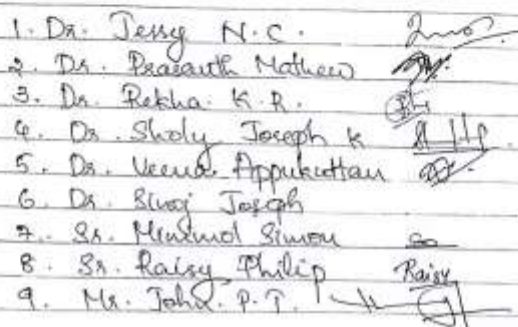 1. Dr. Jessy N.C.
2. Dr. Prasanth Mathew
3. Dr. Rekha K.R.
4. Dr. Sholy Joseph K
5. Dr. Veena Appukuttan
6. Dr. Siroj Joseph
7. Sr. Minimol Simon
8. Sr. Raisy Philip Raisy
9. Mr. John P.T.